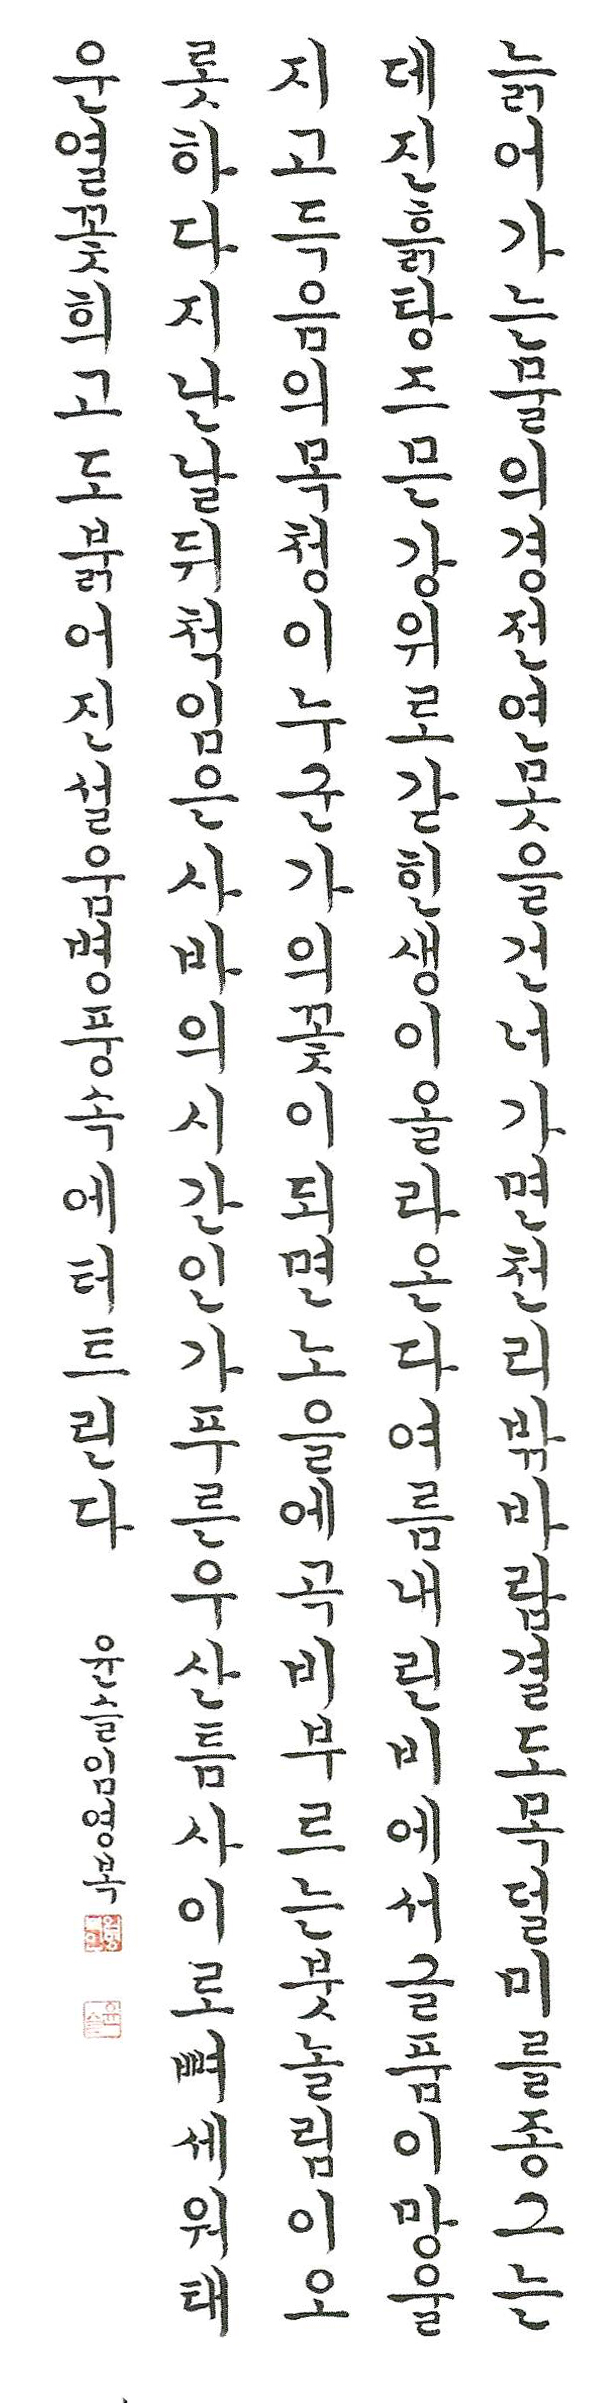 늙어가는물의경전연못을건너가면천리밖바람결도목덜미를종그는
데진흙탕즈믄강위로갇힌생이올라온다여름내린비에서글픔이망울
지고득음의목청이누군가의꽃이되면노을에곡비부르는붓놀림이오
롯하다지난날뒤척임은사바의시간인가푸른우산틈사이로뼈세워태
운열꽃희고도붉어진설움병풍속에터트린다
윤슬임영복